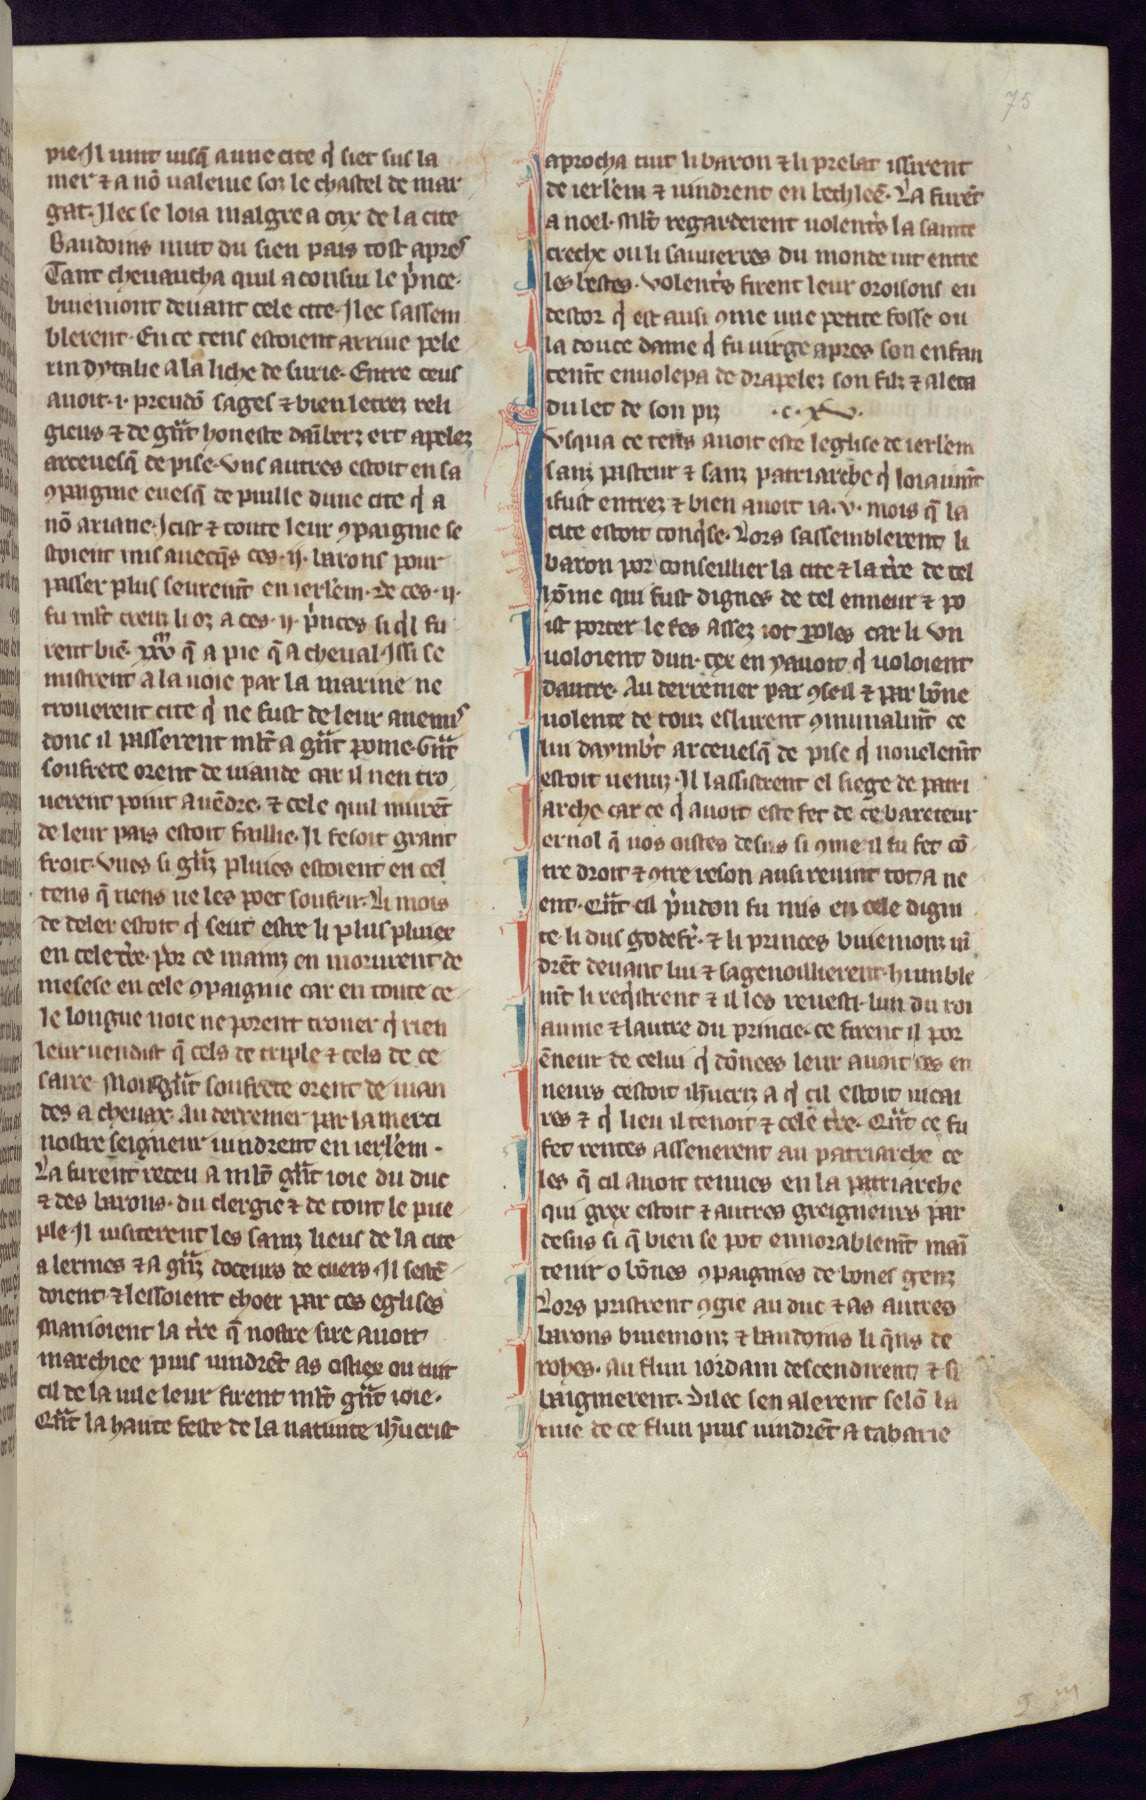 75
pie. Il uint iusq̃ a une cite q̇ siet sus la
mer ⁊ a nõ ualenie soz le chastel de mar
gat. Ilec se loia malgre a cax de la cite
Baudoins mut du sien pais tost apres
Tant cheuaucha quil aconsiu le p̃nce
buiemont deuant cele cite. Ilec sassem
blerent. En ce tens estoient arriue pele
rin dytalie a la liche de surie. Entre ceus
auoit .i. preudõ sages ⁊ bien letrez reli
gieus ⁊ de gr̃t honeste dãlberz ert apelez
arceuesq̃ de pise. Vns autres estoit en sa
ꝯpaignie euesq̃ de puille dune cite q̇ a
nõ ariane. Icist ⁊ toute leur ꝯpaignie se
stoient mis auecq̃s ces .ij. barons pour
passer plus seurem̃t en ierl̃em. De ces .ij.
fu ml̃t creuz li oz a ces .ij. p̃nces si q̃l fu
rent biẽ .xxv.m q̃ a pie q̃ a cheual. Issi se
mistrent a la uoie par la marine ne
trouerent cite q̇ ne fust de leur anemis
donc il passerent ml̃t a gr̃t poine. Gr̃t
soufrete orent de uiande car il nen tro
uerent point a uẽdre. ⁊ cele quil murẽt
de leur pais estoit faillie. Il fesoit grant
froit. Vnes si gr̃z pluies estoient en cel
tens q̃ riens ne les poet soufrir. Li mois
de deler estoit q̇ seut estre li plus pluiex
en cele tr̃e. Por ce mainz en morurent de
mesese en cele ꝯpaignie car en toute ce
le longue uoie ne porent trouer q̇ rien
leur uendist q̃ cels de triple ⁊ cels de ce
saire. Mout gr̃t soufrete orent de uian
des a cheuax. Au derrenier par la merci
nostre seigneur uindrent en ierl̃em.
La furent receu a ml̃t gr̃t ioie du duc
⁊ des barons. du clergie ⁊ de tout le pue
ple. Il uisiterent les sainz lieus de la cite
a lermes ⁊ a gr̃z doceurs de cuers. Il sestẽ
doient. ⁊ lessoient choer par ces eglises
Manioient la tr̃e q̃ nostre sire auoit
marchiee puis uindrẽt as ostiex ou tuit
cil de la uile leur firent ml̃t gr̃t ioie.
Qr̃t la haute feste de la natiuite ih̃ucrist
aprocha tuit li baron ⁊ li prelat issirent
de ierl̃em ⁊ uindrent en bethleẽ. La furẽt
a noel. Ml̃t regarderent uolent̃s la sainte
creche ou li sauuerres du monde iut entre
les bestes. Volent̃s firent leur oroisons en
destor q̇ est ausi ꝯme une petite fosse ou
la douce dame q̇ fu uirge apres son enfan
tem̃t enuolepa de drapelez son filz ⁊ aleta
du let de son piz .c. xv.
Vsqua ce tens auoit este leglise de ierl̃em
sanz pasteur ⁊ sanz patriarche q̇ loiaum̃t
ifust entrez ⁊ bien auoit ia .v. mois q̃ la
cite estoit conq̃se. Lors sassemblerent li
baron por conseillier la cite ⁊ la tr̃e de tel
hõme qui fust dignes de tel enneur ⁊ po
ist porter le fes assez iot ꝑoles car li un
uoloient dun. cex en yauoit q̇ uoloient
dautre. Au derrenier par ꝯseil ⁊ par bõne
uolente de touz eslurent ꝯmunalm̃t ce
lui daymb̃t arceuesq̃ de pise q̇ nouelem̃t
estoit uenuz. Il lassistrent el siege de patri
arche car ce q̇ auoit este fet de ce bareteur
ernol q̃ uos oistes desus si ꝯme il fu fet cõ
tre droit ⁊ ꝯtre reson ausi reuint tot a ne
ent. Qr̃t cil p̃udon fu mis en cele digni
te. li dus godefr̃. ⁊ li princes buiemonz uĩ
drẽt deuant lui ⁊ sagenoillierent. humble
m̃t li req̃strent ⁊ il les reuesti. lun du roi
aume ⁊ lautre du princie. ce firent il por
ẽneur de celui q̇ dõnees leur auoit ces en
neurs cestoit ih̃ucriz a q̇ cil estoit uicai
res ⁊ q̇ lieu il tenoit ⁊ cele tr̃e. Qr̃t ce fu
fet rentes assenerent au patriarche ce
les q̃ cil auoit tenues en la patriarche
qui grex estoit ⁊ autres greigneurs par
desus si q̃ bien se pot ennorablem̃t maĩ
tenir o bõnes ꝯpaignies de bones genz
Lors pristrent ꝯgie au duc ⁊ as autres
barons buiemonz ⁊ baudoins li q̃ns de
rohes. au flun iordain descendirent ⁊ si
baignierent. Dilec sen alerent selõ la
riue de ce flun puis uindrẽt a tabarie